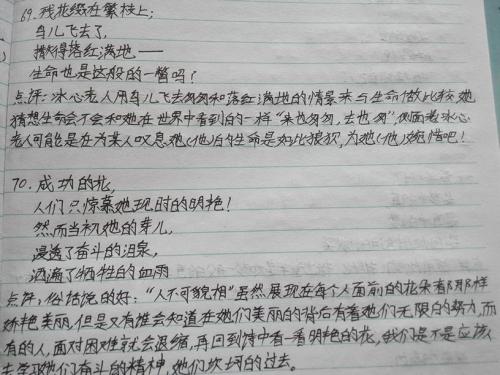 69. 残花缀在繁枝上；
鸟儿飞去了，
撒得落红满地——
生命也是这般的一瞥吗？
点评：冰心老人用鸟儿飞去匆匆和落红满地的情景来与生命做比较，她
猜想生命会不会和她在世界中看到的一样"来也匆匆，去也匆"，侧面老冰心
老人可能是在为某人叹息她(他)的生命是如此狼狈，为她(他)惋惜吧！
70. 成功的花，
人们只惊慕她现时的明艳！
然而当初她的芽儿，
浸透了奋斗的泪泉，
洒遍了牺牲的血雨
点评：俗话说的好："人不可貌相"虽然展现在每个人面前的花朵有那那样
娇艳美丽，但是又有谁会知道在她们美丽的背后有着她们无限的努力，而
有的人，面对困难就会退缩，再回到诗中看一看明艳的花，我们是不是应该
去学习她们奋斗的精神，她们坎坷的过去。